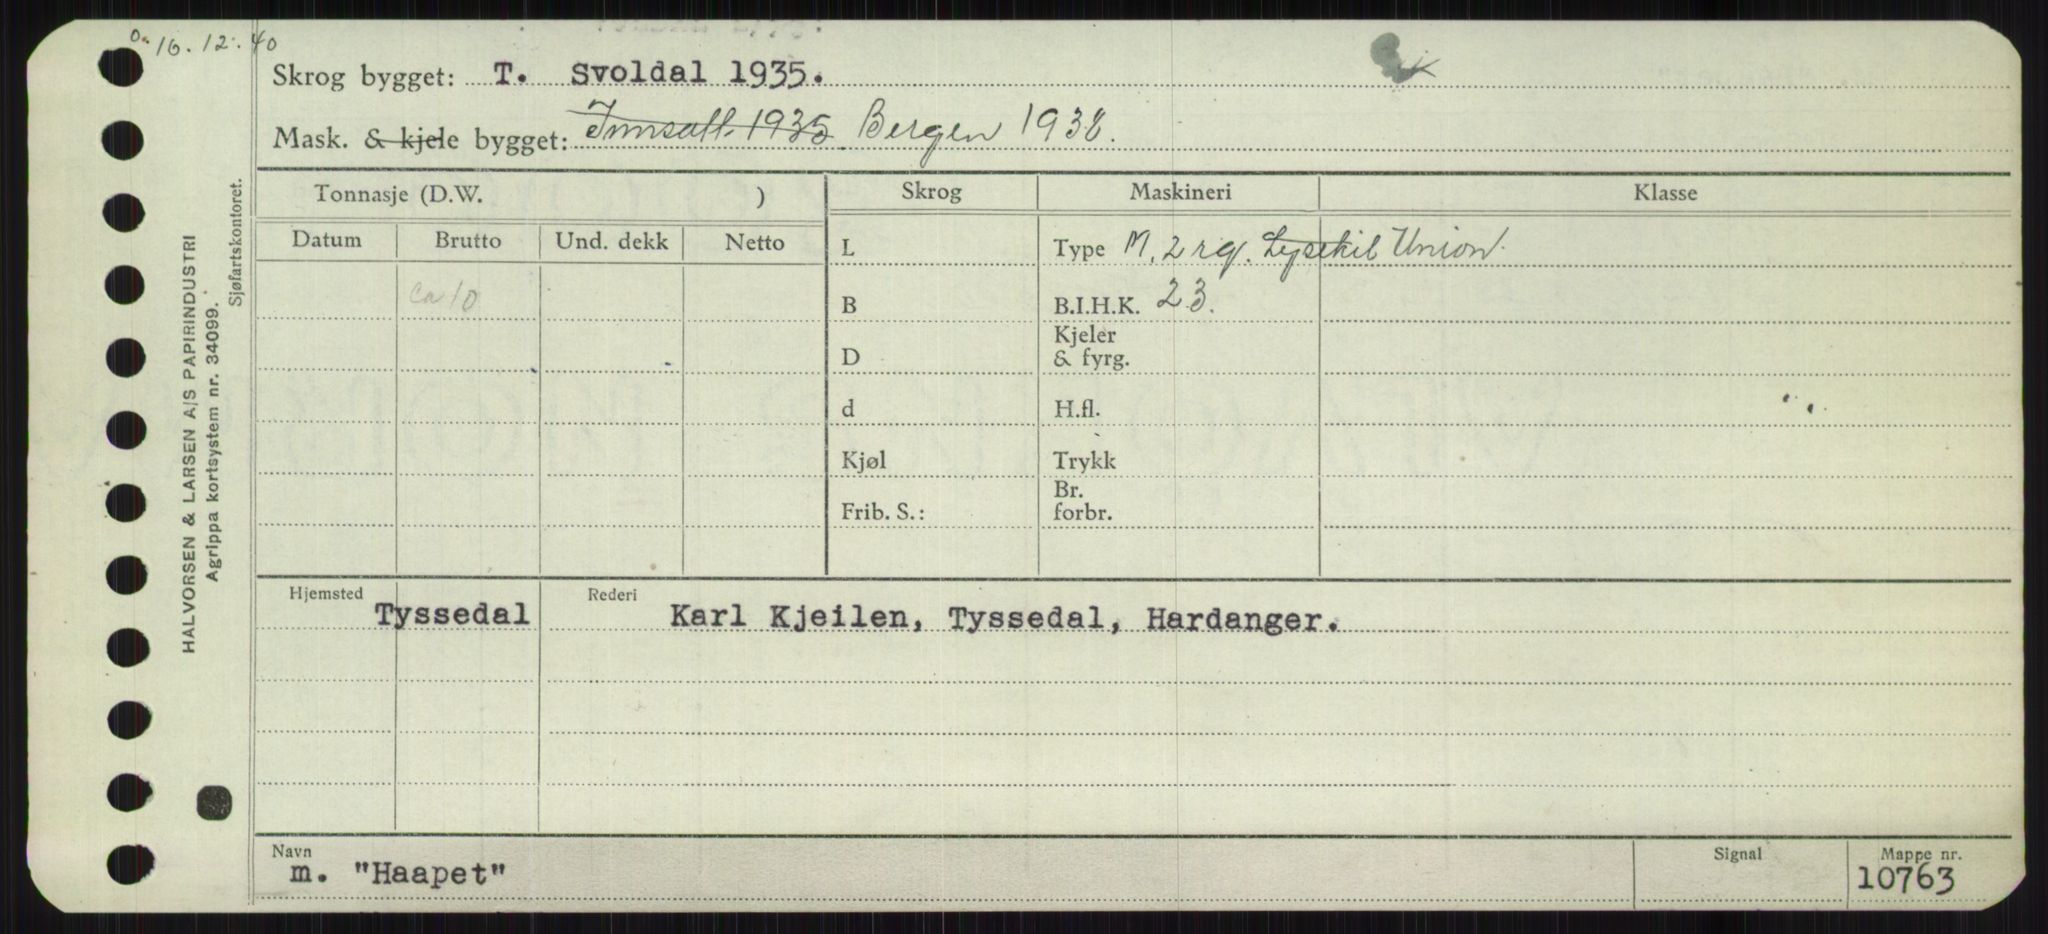 16.12.40
Skrog bygget: T. Svoldal 1935.
Mask. & kjele bygget: Innsatt 1935 Bergen 1938.
HALVORSEN & LARSEN A/S PAPIRINDUSTRI
Agrippa kortsystem nr. 34099.
Sjøfartskontoret.
Tonnasje (D.W. ) Skrog Maskineri Klasse
Datum Brutto Und. dekk Netto
L Type M. 2 rg. Lysekil Union.
ca 10
B B.I.H.K. 23.
Kjeler
D & fyrg.
d H.fl.
Kjøl Trykk
Br.
Frib. S.: forbr.
Hjemsted Tyssedal Rederi Karl Kjeilen, Tyssedal, Hardanger.
Navn Signal Mappe nr.
m. "Haapet" 10763